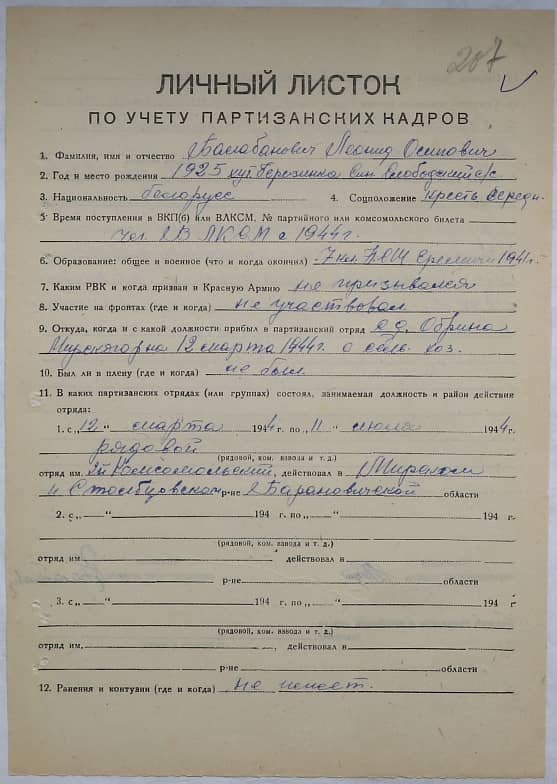 207
ЛИЧНЫЙ ЛИСТОК
ПО УЧЕТУ ПАРТИЗАНСКИХ КАДРОВ
1. Фамилия, имя и отчество Балабанович Леонид Осипович
2. Год и место рождения 1925 хут. Березинка с/с
3. Национальность белорусс 4. Соцположение крест. середн.
5 Время поступления в ВКП(б) или ВЛКСМ, № партийного или комсомольского билета
чл. ЛКСМ с 1944г.
6. Образование: общее и военное (что и когда окончил) 7 кл. Еремичи 1941г.
7. Каким РВК и когда призван в Красную Армию не призывался
8. Участие на фронтах (где и когда) не участвовал
9. Откуда, когда и с какой должности прибыл в партизанский отряд с д. Обрина
Мирского р-на 12 марта 1944г. с сельс. хоз.
10. Был ли в плену (где и когда) не был
11. В каких партизанских отрядах (или группах) состоял, занимаемая должность и район действия
отряда:
1. с „12“ марта 1944 г. по „11“ июля 1944 г.
рядовой
(рядовой, ком. взвода и т. д.)
отряд им. Комсомольский, действовал в Мирском
и Столбцовском р-не Барановичской области
2. с „ “ 194 г. по „ “ 194 г.
(рядовой, ком. взвода и т. д.)
отряд им. действовал в
р-не области
3. с „ “ 194 г. по „ “ 194 г
(рядовой, ком. взвода и т. д.)
отряд им. , действовал в
р-не области
12. Ранения и контузии (где и когда) не имеет.